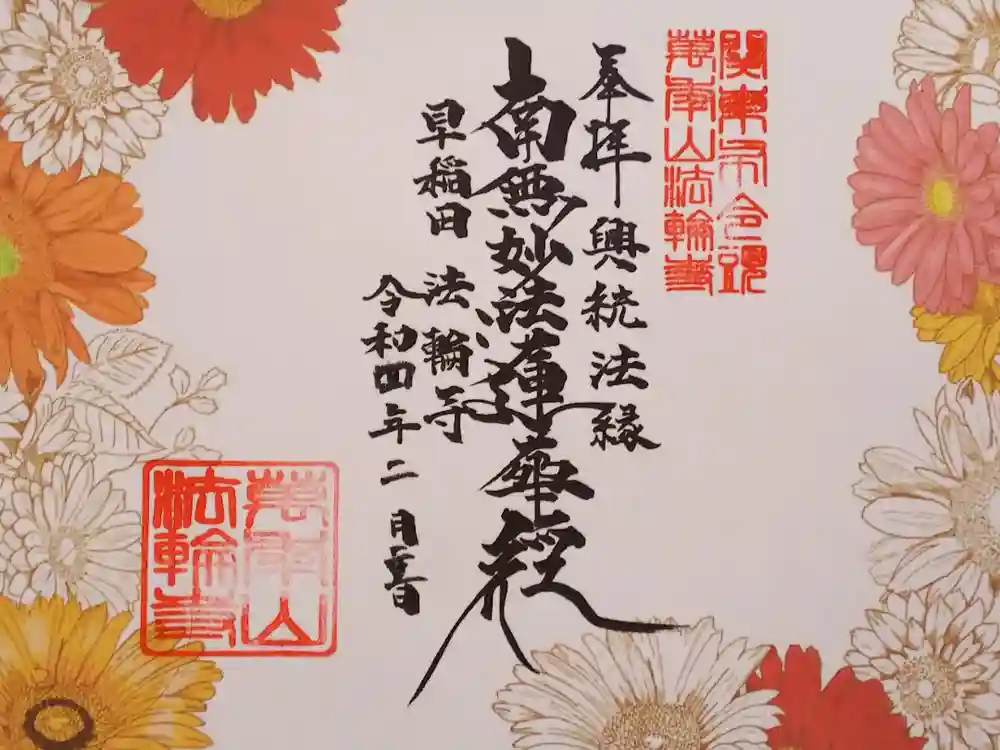 奉拝 興統法縁
南無妙法蓮華経
早稲田 法輪寺
令和四年二月吉日
萬年山
法輪寺
萬年山法輪寺